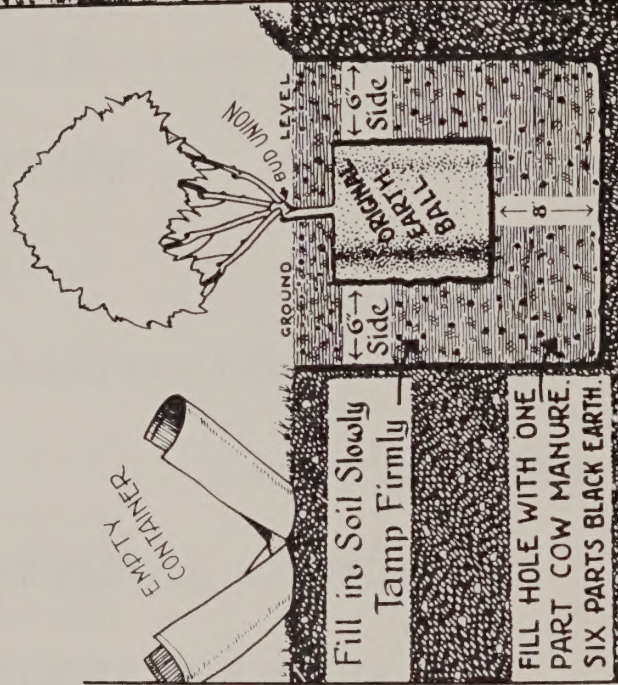 EMPTY
CONTAINER
BUD UNION
GROUND LEVEL
←6"→
Side
←6"→
Side
ORIGINAL
EARTH
BALL
Fill in Soil Slowly
Tamp Firmly
←8"→
FILL HOLE WITH ONE
PART COW MANURE.
SIX PARTS BLACK EARTH.